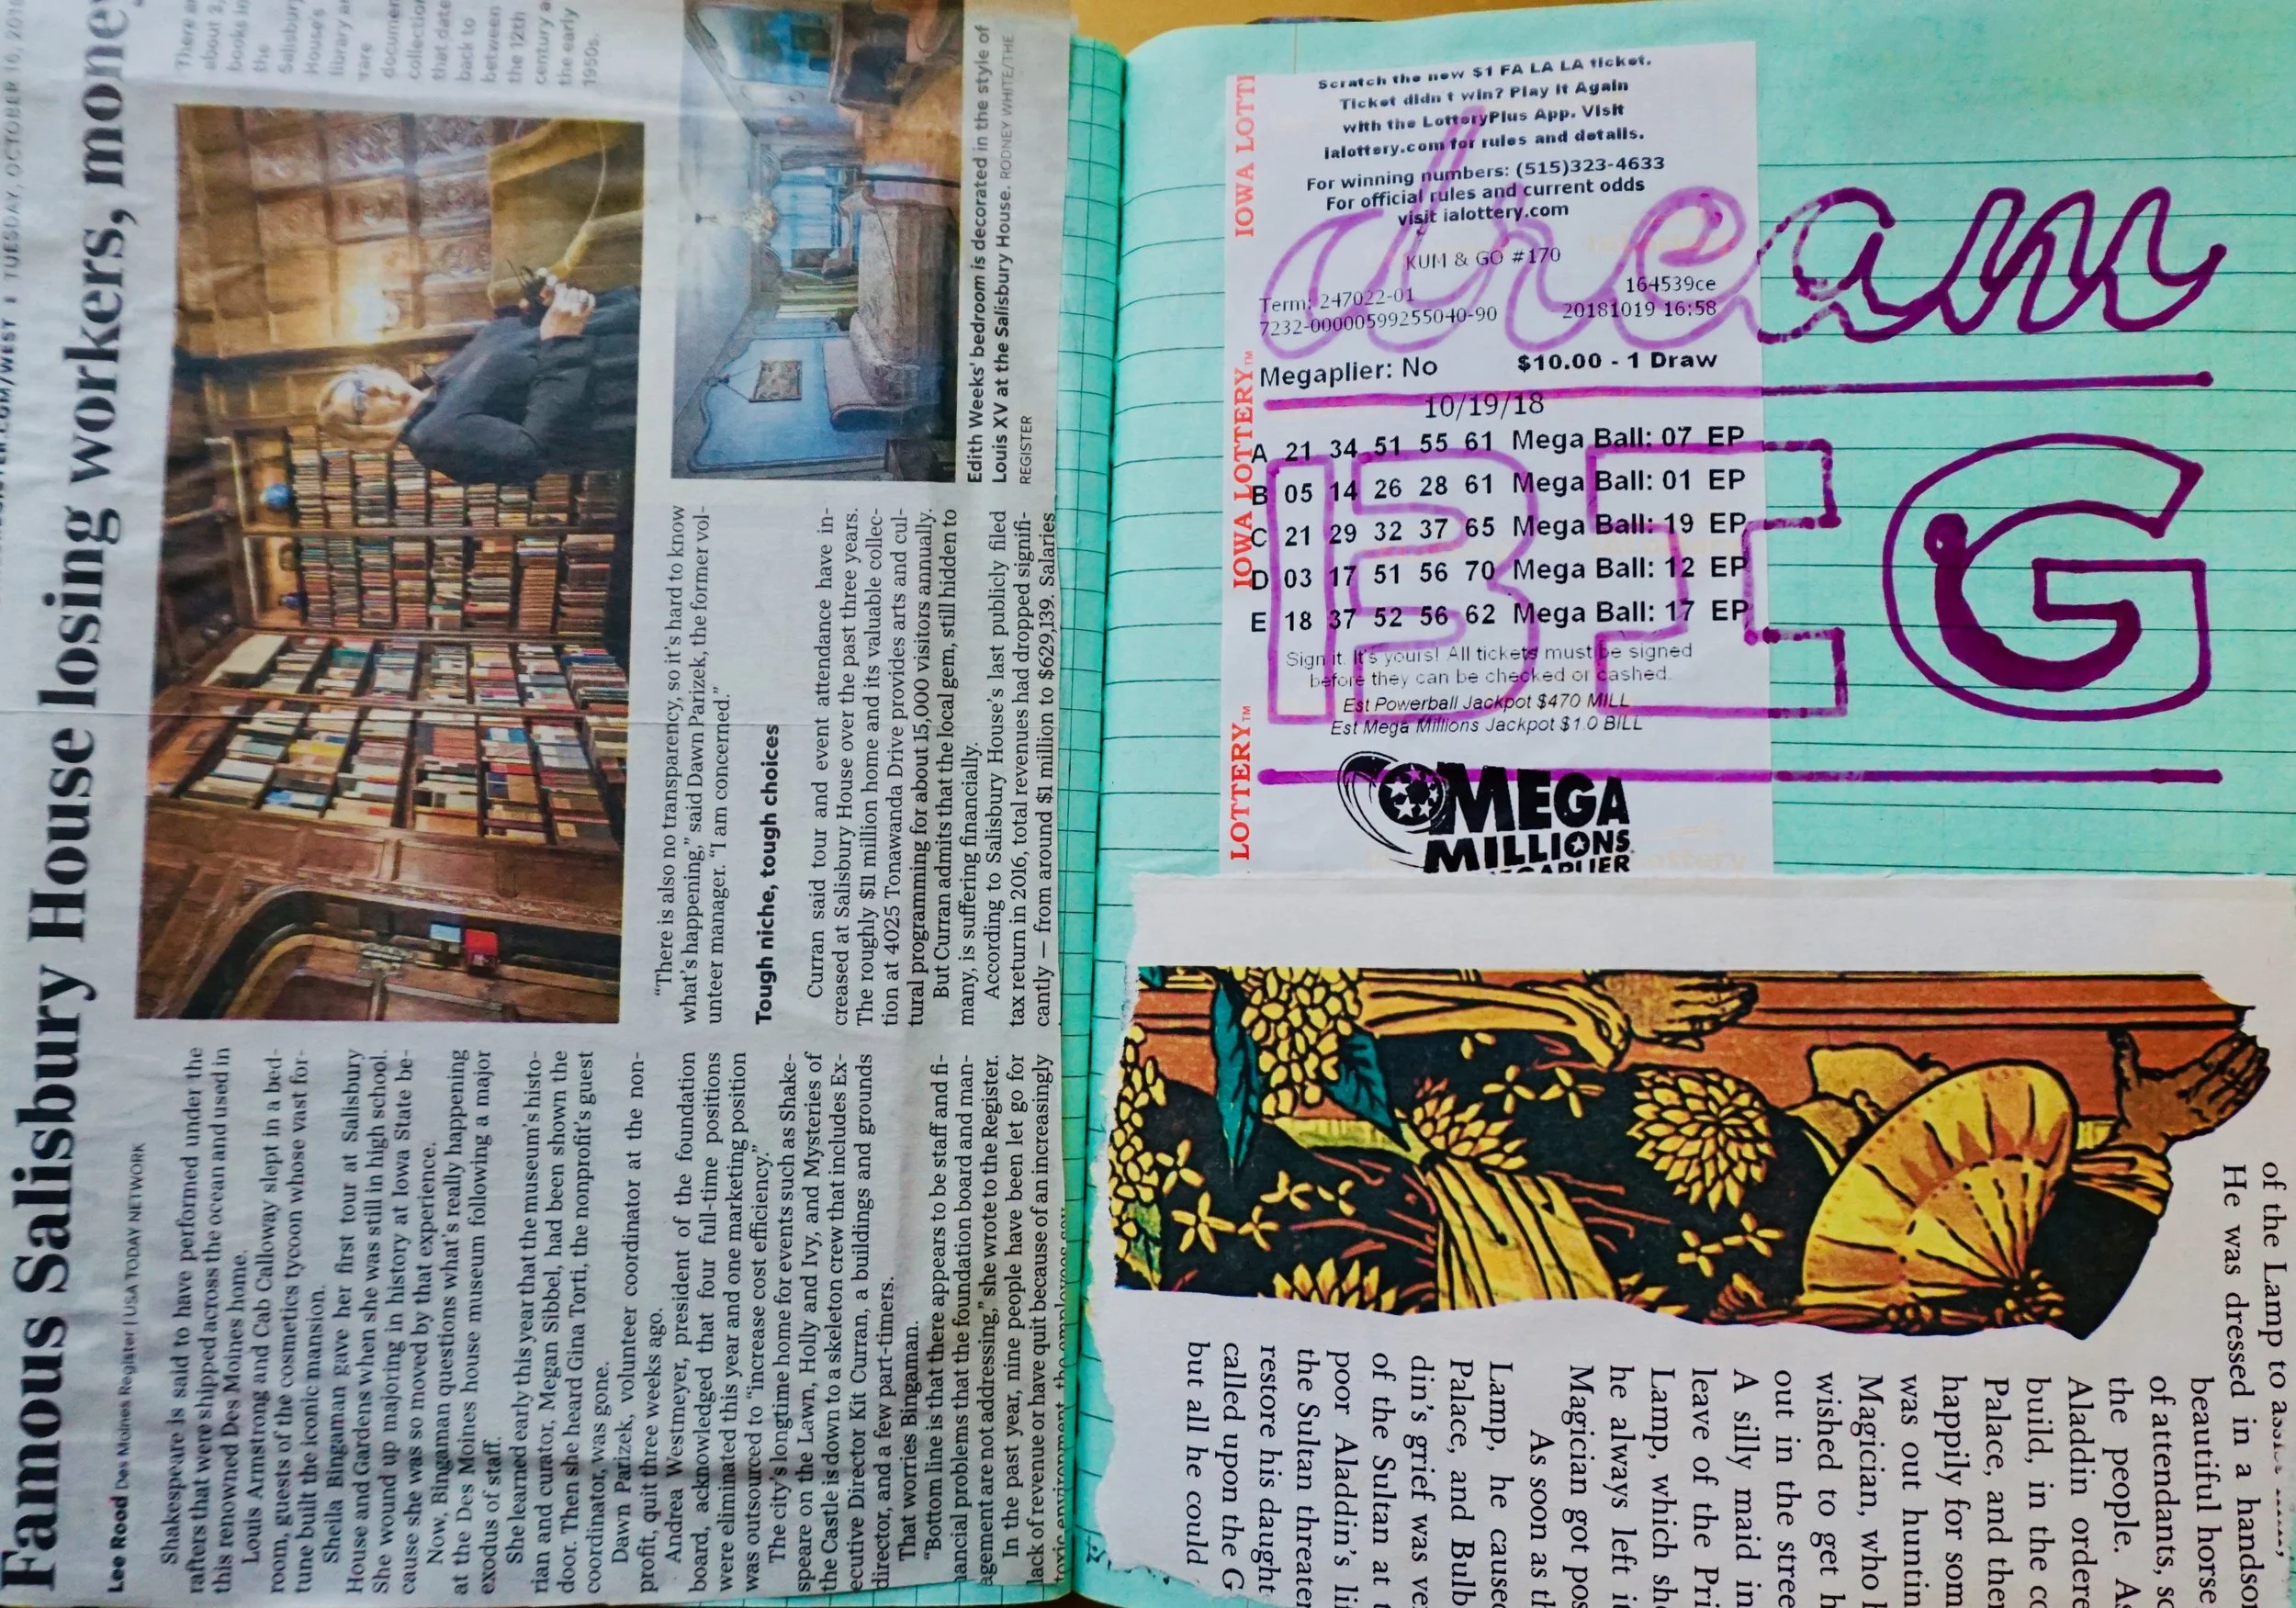 TUESDAY, OCTOBER 16, 201
Famous Salisbury House losing workers, money
Lee Rood Des Moines Register | USA TODAY NETWORK
Shakespeare is said to have performed under the
rafters that were shipped across the ocean and used in
this renowned Des Moines home.
Louis Armstrong and Cab Calloway slept in a bed-
room, guests of the cosmetics tycoon whose vast for-
tune built the iconic mansion.
Shella Bingaman gave her first tour at Salisbury
House and Gardens when she was still in high school.
She wound up majoring in history at Iowa State be-
cause she was so moved by that experience.
Now, Bingaman questions what's really happening
at the Des Moines house museum following a major
exodus of staff.
She learned early this year that the museum's histo-
rian and curator, Megan Sibbel, had been shown the
door. Then she heard Gina Torti, the nonprofit's guest
coordinator, was gone.
Dawn Parizek, volunteer coordinator at the non-
profit, quit three weeks ago.
Andrea Westmeyer, president of the foundation
board, acknowledged that four full-time positions
were eliminated this year and one marketing position
was outsourced to "increase cost efficiency."
The city's longtime home for events such as Shake-
speare on the Lawn, Holly and Ivy, and Mysteries of
the Castle is down to a skeleton crew that includes Ex-
ecutive Director Kit Curran, a buildings and grounds
director, and a few part-timers.
That worries Bingaman.
"Bottom line is that there appears to be staff and fi-
nancial problems that the foundation board and man-
agement are not addressing," she wrote to the Register.
In the past year, nine people have been let go for
lack of revenue or have quit because of an increasingly
toxic environment, the employees say.
"There is also no transparency, so it's hard to know
what's happening," said Dawn Parizek, the former vol-
unteer manager. "I am concerned."
Tough niche, tough choices
Curran said tour and event attendance have in-
creased at Salisbury House over the past three years.
The roughly $11 million home and its valuable collec-
tion at 4025 Tonawanda Drive provides arts and cul-
tural programming for about 15,000 visitors annually.
But Curran admits that the local gem, still hidden to
many, is suffering financially.
According to Salisbury House's last publicly filed
tax return in 2016, total revenues had dropped signifi-
cantly — from around $1 million to $629,139. Salaries
There a
about 3,
books in
the
Salisbury
House's
library a
rare
documen
collectio
that date
back to
between
the 12th
century a
the early
1950s.
Edith Weeks' bedroom is decorated in the style of
Louis XV at the Salisbury House. RODNEY WHITE/THE
REGISTER
IOWA LOTTE
IOWA LOTTERY™
LOTTERY™
Scratch the new $1 FA LA LA ticket.
Ticket didn't win? Play It Again
with the LotteryPlus App. Visit
ialottery.com for rules and details.
For winning numbers: (515)323-4633
For official rules and current odds
visit ialottery.com
KUM & GO #170
164539ce
Term: 247022-01
7232-00000599255040-90
20181019 16:58
Megaplier: No $10.00 - 1 Draw
10/19/18
A 21 34 51 55 61 Mega Ball: 07 EP
B 05 14 26 28 61 Mega Ball: 01 EP
C 21 29 32 37 65 Mega Ball: 19 EP
D 03 17 51 56 70 Mega Ball: 12 EP
E 18 37 52 56 62 Mega Ball: 17 EP
Sign it. It's yours! All tickets must be signed
before they can be checked or cashed.
Est Powerball Jackpot $470 MILL
Est Mega Millions Jackpot $1.0 BILL
MEGA
MILLIONS
MEGAPLIER
dream
BIG
of the Lamp to
He was dressed in a handsom
beautiful horse
of attendants, sc
the people. As
Aladdin ordere
build, in the co
Palace, and ther
happily for som
was out huntin
Magician, who
wished to get h
out in the stree
A silly maid in
leave of the Pri
Lamp, which sh
he always left i
Magician got pos
As soon as th
Lamp, he caused
Palace, and Bulb
din's grief was ve
of the Sultan at t
poor Aladdin's li
the Sultan threater
restore his daught
called upon the G
but all he could